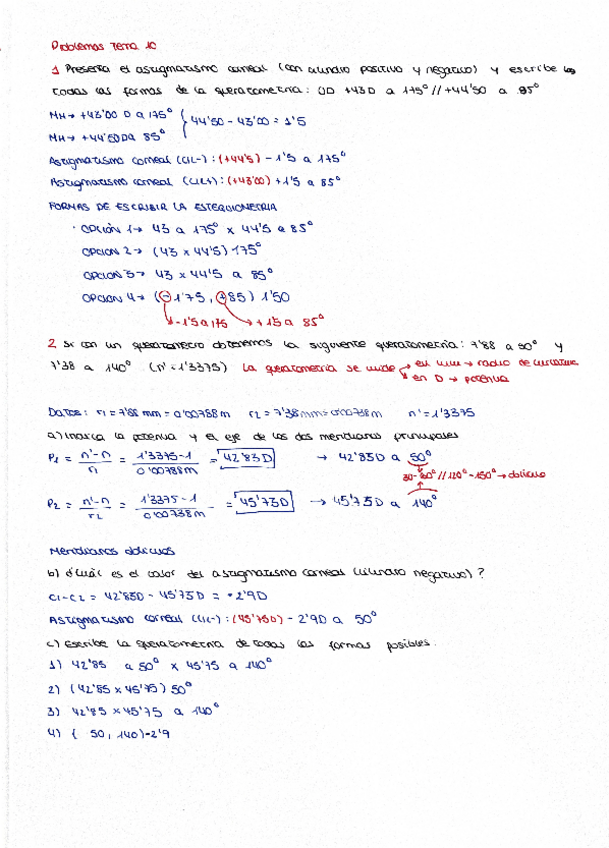 Problemas Tema 10
1 Presenta el astigmatismo corneal (con cilindro positivo y negativo) y escribe
todas las formas de la queratometria: OD +43D a 175º // +44'50 a 85º
MH→ +43'00 D a 175º
44'50 - 43'00 = 1'5
MH→ +44'50D a 85º
Astigmatismo corneal (CIL-): (+44'5) - 1'5 a 175º
Astigmatismo corneal (CIL+): (+43'00) + 1'5 a 85º
FORMAS DE ESCRIBIR LA ESTEQUIOMETRIA
· OPCIÓN 1→ 43 a 175º x 44'5 a 85º
OPCION 2→ (43 x 44'5) 175º
OPCION 3→ 43 x 44'5 a 85º
OPCION 4→ (-175, +85) 1'50
-1'5 a 175 → +1'5 a 85º
2. Si con un queratometro obtenemos la siguiente queratometria: 7'88 a 50º y
7'38 a 140º (n' = 1'3375) La queratometria se mide → en mm → radio de curvatura
en D → potencia
Datos: r1 = 7'88 mm = 0'00788m r2 = 7'38mm = 0'00738m n' = 1'3375
a) marca la potencia y el eje de los dos meridianos principales
P1 = n'-n / r1 = 1'3375-1 / 0'00788m = 42'83D → 42'83D a 50º
30-60º // 120º-150º → oblicuo
P2 = n'-n / r2 = 1'3375-1 / 0'00738m = 45'73D → 45'73D a 140º
Meridianos oblicuos
b) ¿Cuál es el valor del astigmatismo corneal (cilindro negativo)?
C1-C2 = 42'83D - 45'73D = -2'9D
Astigmatismo corneal (CIL-): (45'73D) - 2'9D a 50º
c) Escribe la queratometria de todas las formas posibles.
1) 42'85 a 50º x 45'75 a 140º
2) (42'85 x 45'75) 50º
3) 42'85 x 45'75 a 140º
4) ( 50, 140)-2'9